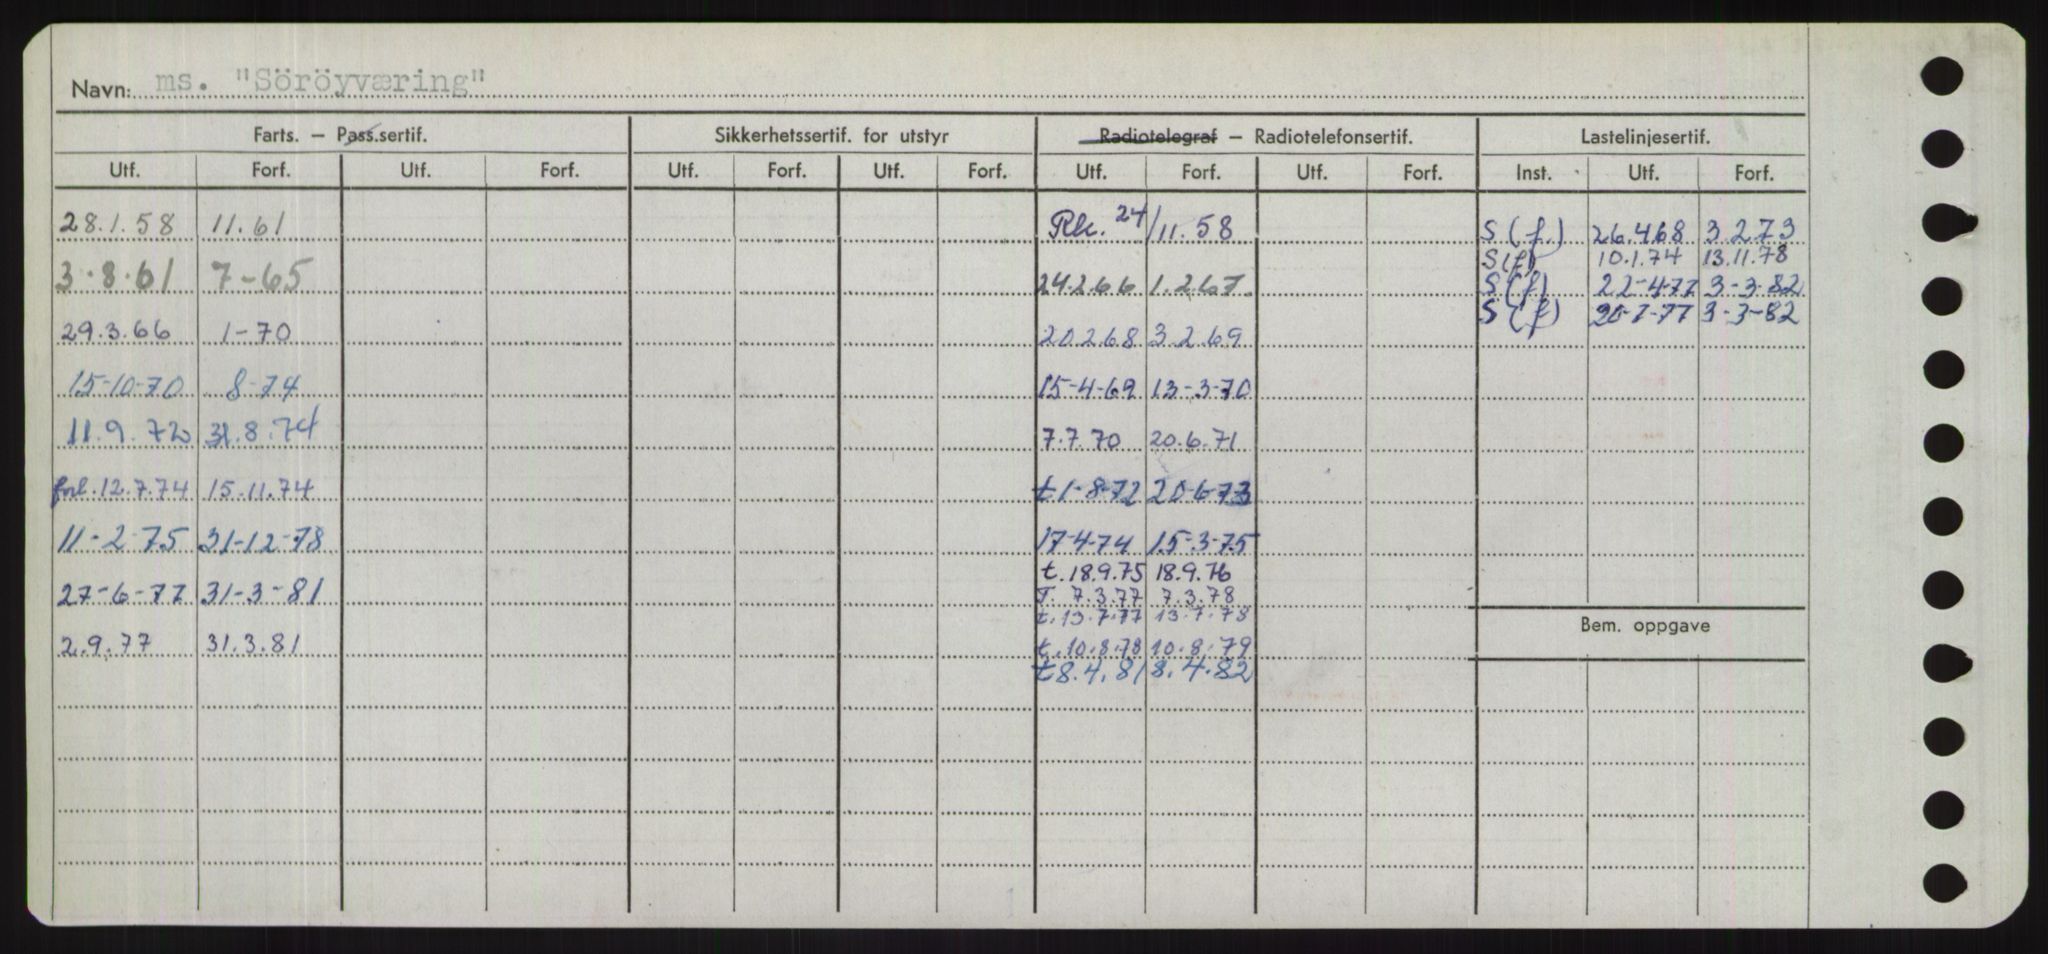 Navn: ms. "Söröyværing"
Farts. — Pass.sertif. Sikkerhetssertif. for utstyr Radiotelegraf — Radiotelefonsertif. Lastelinjesertif.
Utf. Forf. Utf. Forf. Utf. Forf. Utf. Forf. Utf. Forf. Utf. Forf. Inst. Utf. Forf.
28.1.58 11.61 24/11.58 S (f.) 26.4.68 3.2.73
S (f) 10.1.74 13.11.78
3.8.61 7-65 24.2.66 1.2.67. S (f) 22-4-77 3-3-82
S (f) 20-7-77 3-3-82
29.3.66 1-70 20.2.68 3.2.69
15-10-70 8-74 15-4-69 13-3-70
11.9.72 31.8.74 7.7.70 20.6.71
forl.12.7.74 15.11.74 t 1-8-72 20-6-73
11-2-75 31-12-78 17-4-74 15-3-75
t. 18.9.75 18.9.76
27-6-77 31-3-81 T. 7.3.77 7.3.78
t. 13.7.77 13.7.78
Bem. oppgave
2.9.77 31.3.81 t. 10.8.78 10.8.79
t 8.4.81 8.4.82